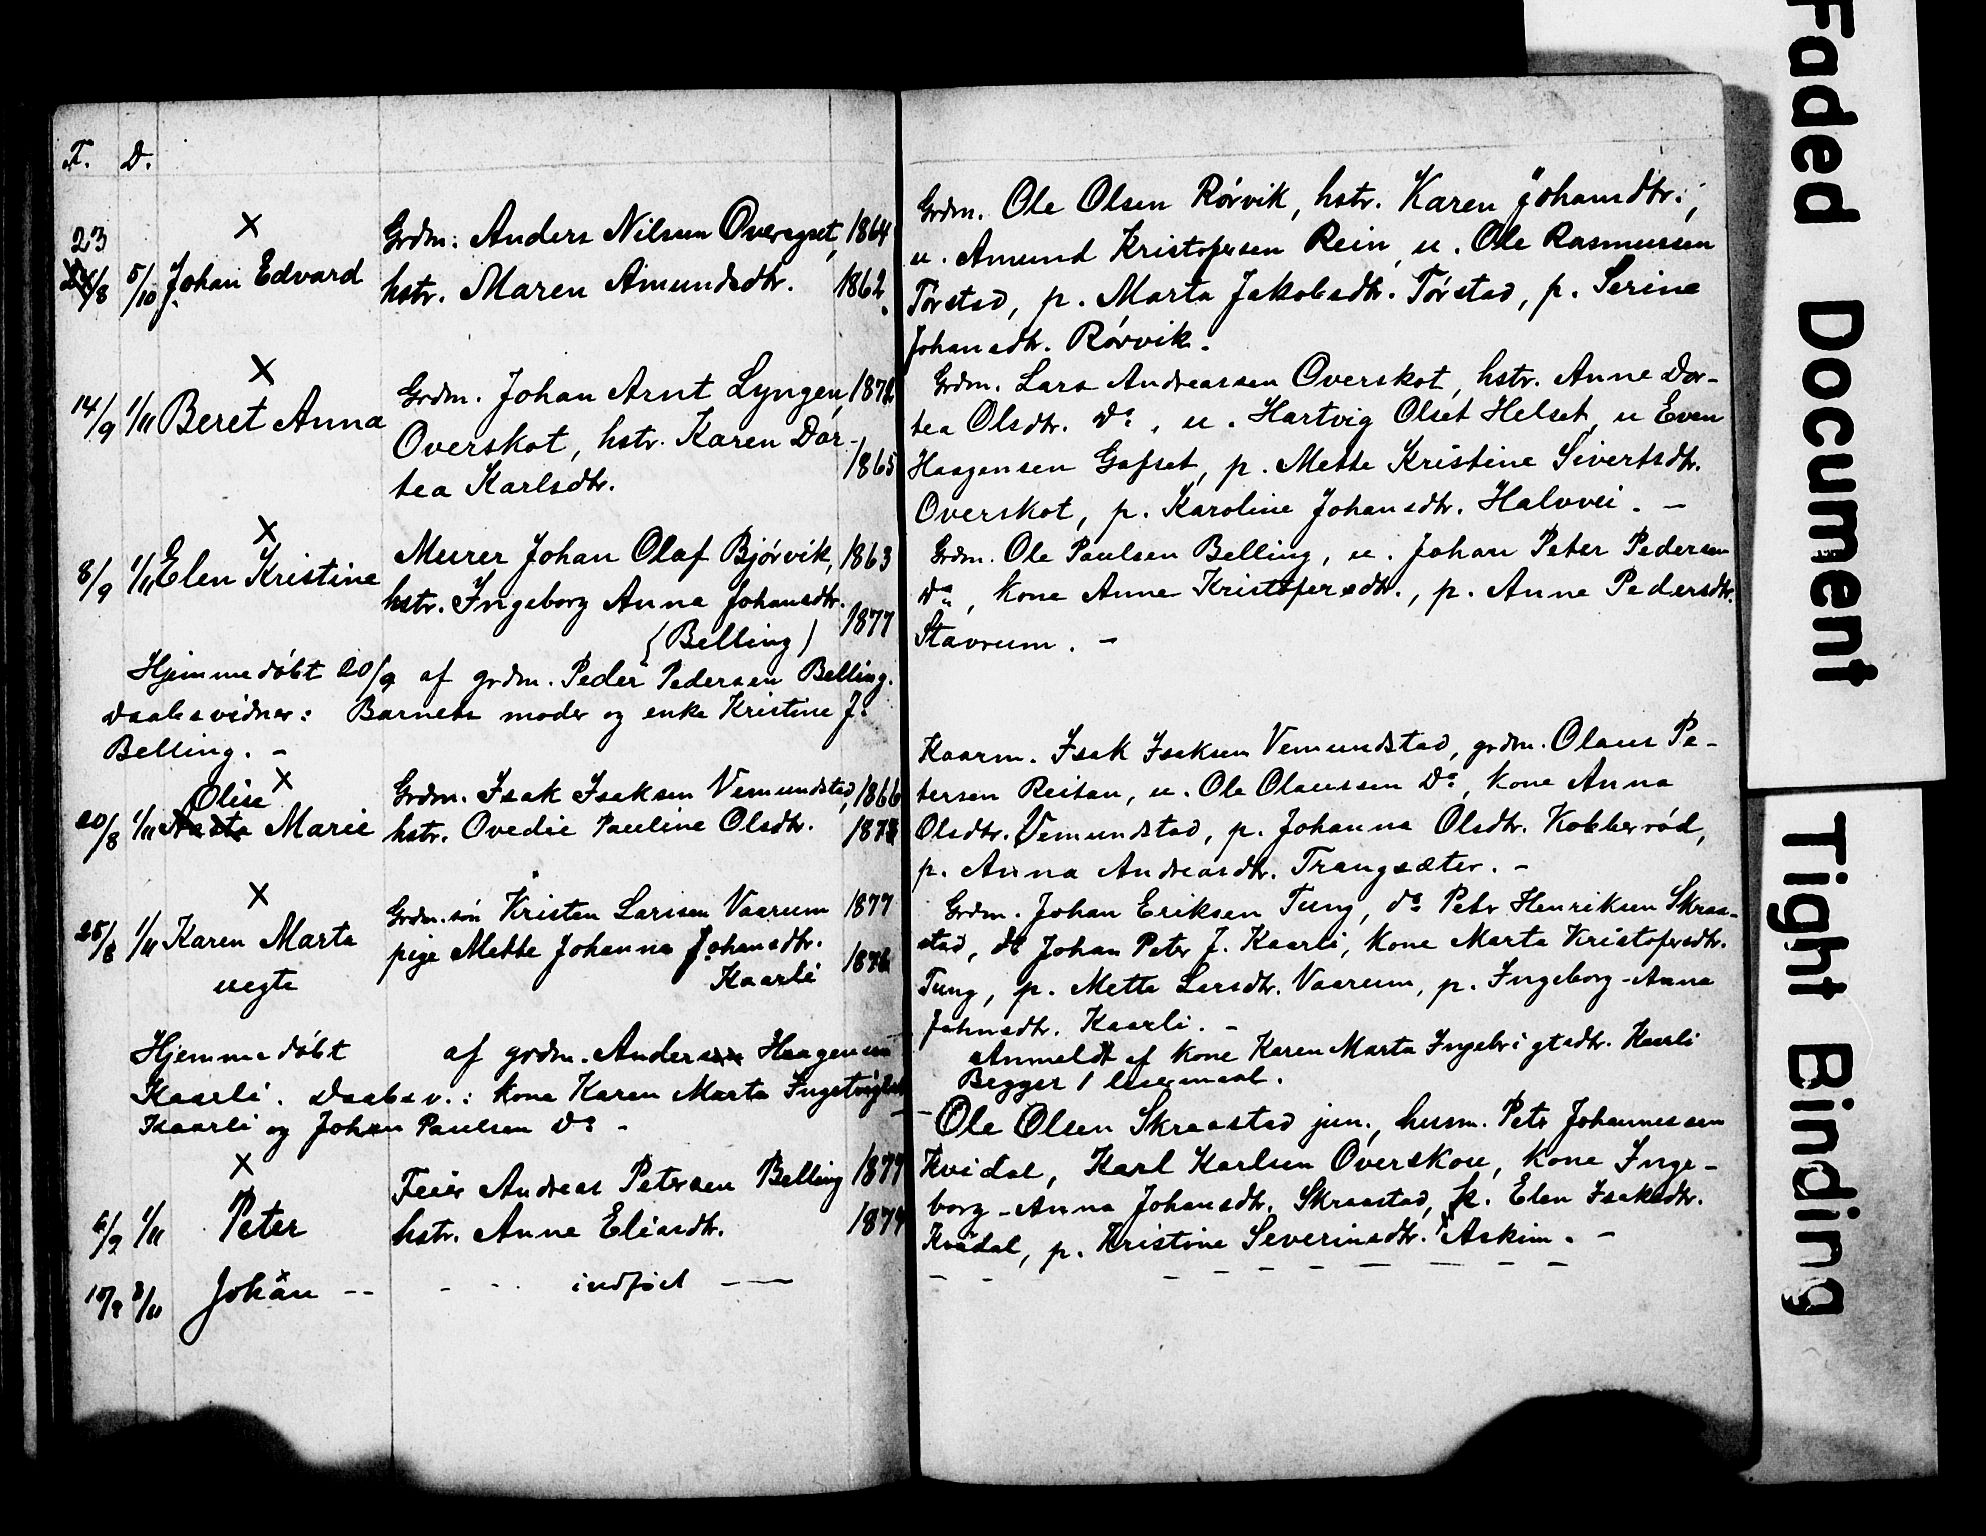 F. D.
23
24/8 5/10 Johan Edvard
Grdm. Anders Nilsen Overeyset, 1864
hstr. Maren Amundsdtr. 1862.
14/9 1/11 Beret Anna
Grdm. Johan Arnt Lyngen, 1871
Overskot, hstr. Karen Dor-
tea Karlsdtr. 1865
8/9 1/11 Elen Kristine
Murer Johan Olaf Bjórvik, 1863
hstr. Ingeborg Anna Johansdtr. 1877
(Belling)
Hjemmedóbt 20/9 af grdm. Peder Pedersen Belling.
Daabsvidner: Barnets moder og enke Kristine J.
Belling. -
Olise
20/8 1/11 Marie
Grdm. Isak Isaksen Vemundstad, 1866
hstr. Ovedie Pauline Olsdtr.
25/8 1/11 Karen Marta
uegte
Grdm.són Kristen Larsen Vaarum 1877
pige Mette Johanna Johansdtr.
Kaarli 1876
Hjemmedóbt af grdm. Anders Haagensen
Kaarli. Daabsv.: kone Karen Marta Ingebrigtsdtr.
Kaarli og Johan Paulsen Do -
6/9 1/11 Peter
Feier Andreas Petersen Belling 1877
hstr. Anne Eliasdtr. 1874
10/9 8/11 Johan -- - - - indfórt - —
Grdm. Ole Olsen Rórvik, hstr. Karen Johansdtr.,
u. Amund Kristofersen Rein, u. Ole Rasmussen
Tórstad, p. Marta Jakobsdtr. Tórstad, p. Serine
Johansdtr. Rórvik.
Grdm. Lars Andreassen Overskot, hstr. Anne Dor-
tea Olsdtr. Do, u. Hartvig Olset Helset, u Even
Haagensen Gafset, p. Mette Kristine Sivertsdtr.
Overskot, p. Karoline Johansdtr. Halvvei. -
Grdm. Ole Paulsen Belling, u. Johan Peter Pedersen
Do, kone Anne Kristofersdtr., p. Anne Pedersdtr.
Stavrum. -
Kaarm. Isak Isaksen Vemundstad, grdm. Olaus Pe-
tersen Reitan, u. Ole Olaussen Do, kone Anna
Olsdtr. Vemundstad, p. Johanna Olsdtr. Kobberród,
p. Anna Andreasdtr. Trangsæter. -
Grdm. Johan Eriksen Tung, do Peter Henriksen Skraa-
stad, do Johan Peter J. Kaarli, kone Marta Kristofersdtr.
Tung, p. Mette Larsdtr. Vaarum, p. Ingeborg-Anna
Johnsdtr. Kaarli. -
Anmeldt af kone Karen Marta Ingebrigtsdtr. Kaarli
Begges 1 leiermaal.
- Ole Olsen Skraastad jun., husm. Peter Johannessen
Kvidal, Karl Karlsen Overskou, kone Inge-
borg-Anna Johansdtr. Skraastad, p. Elen Isaksdtr.
Kvidal, p. Kristine Severinsdtr. Askim. -
Faded Document
Tight Binding